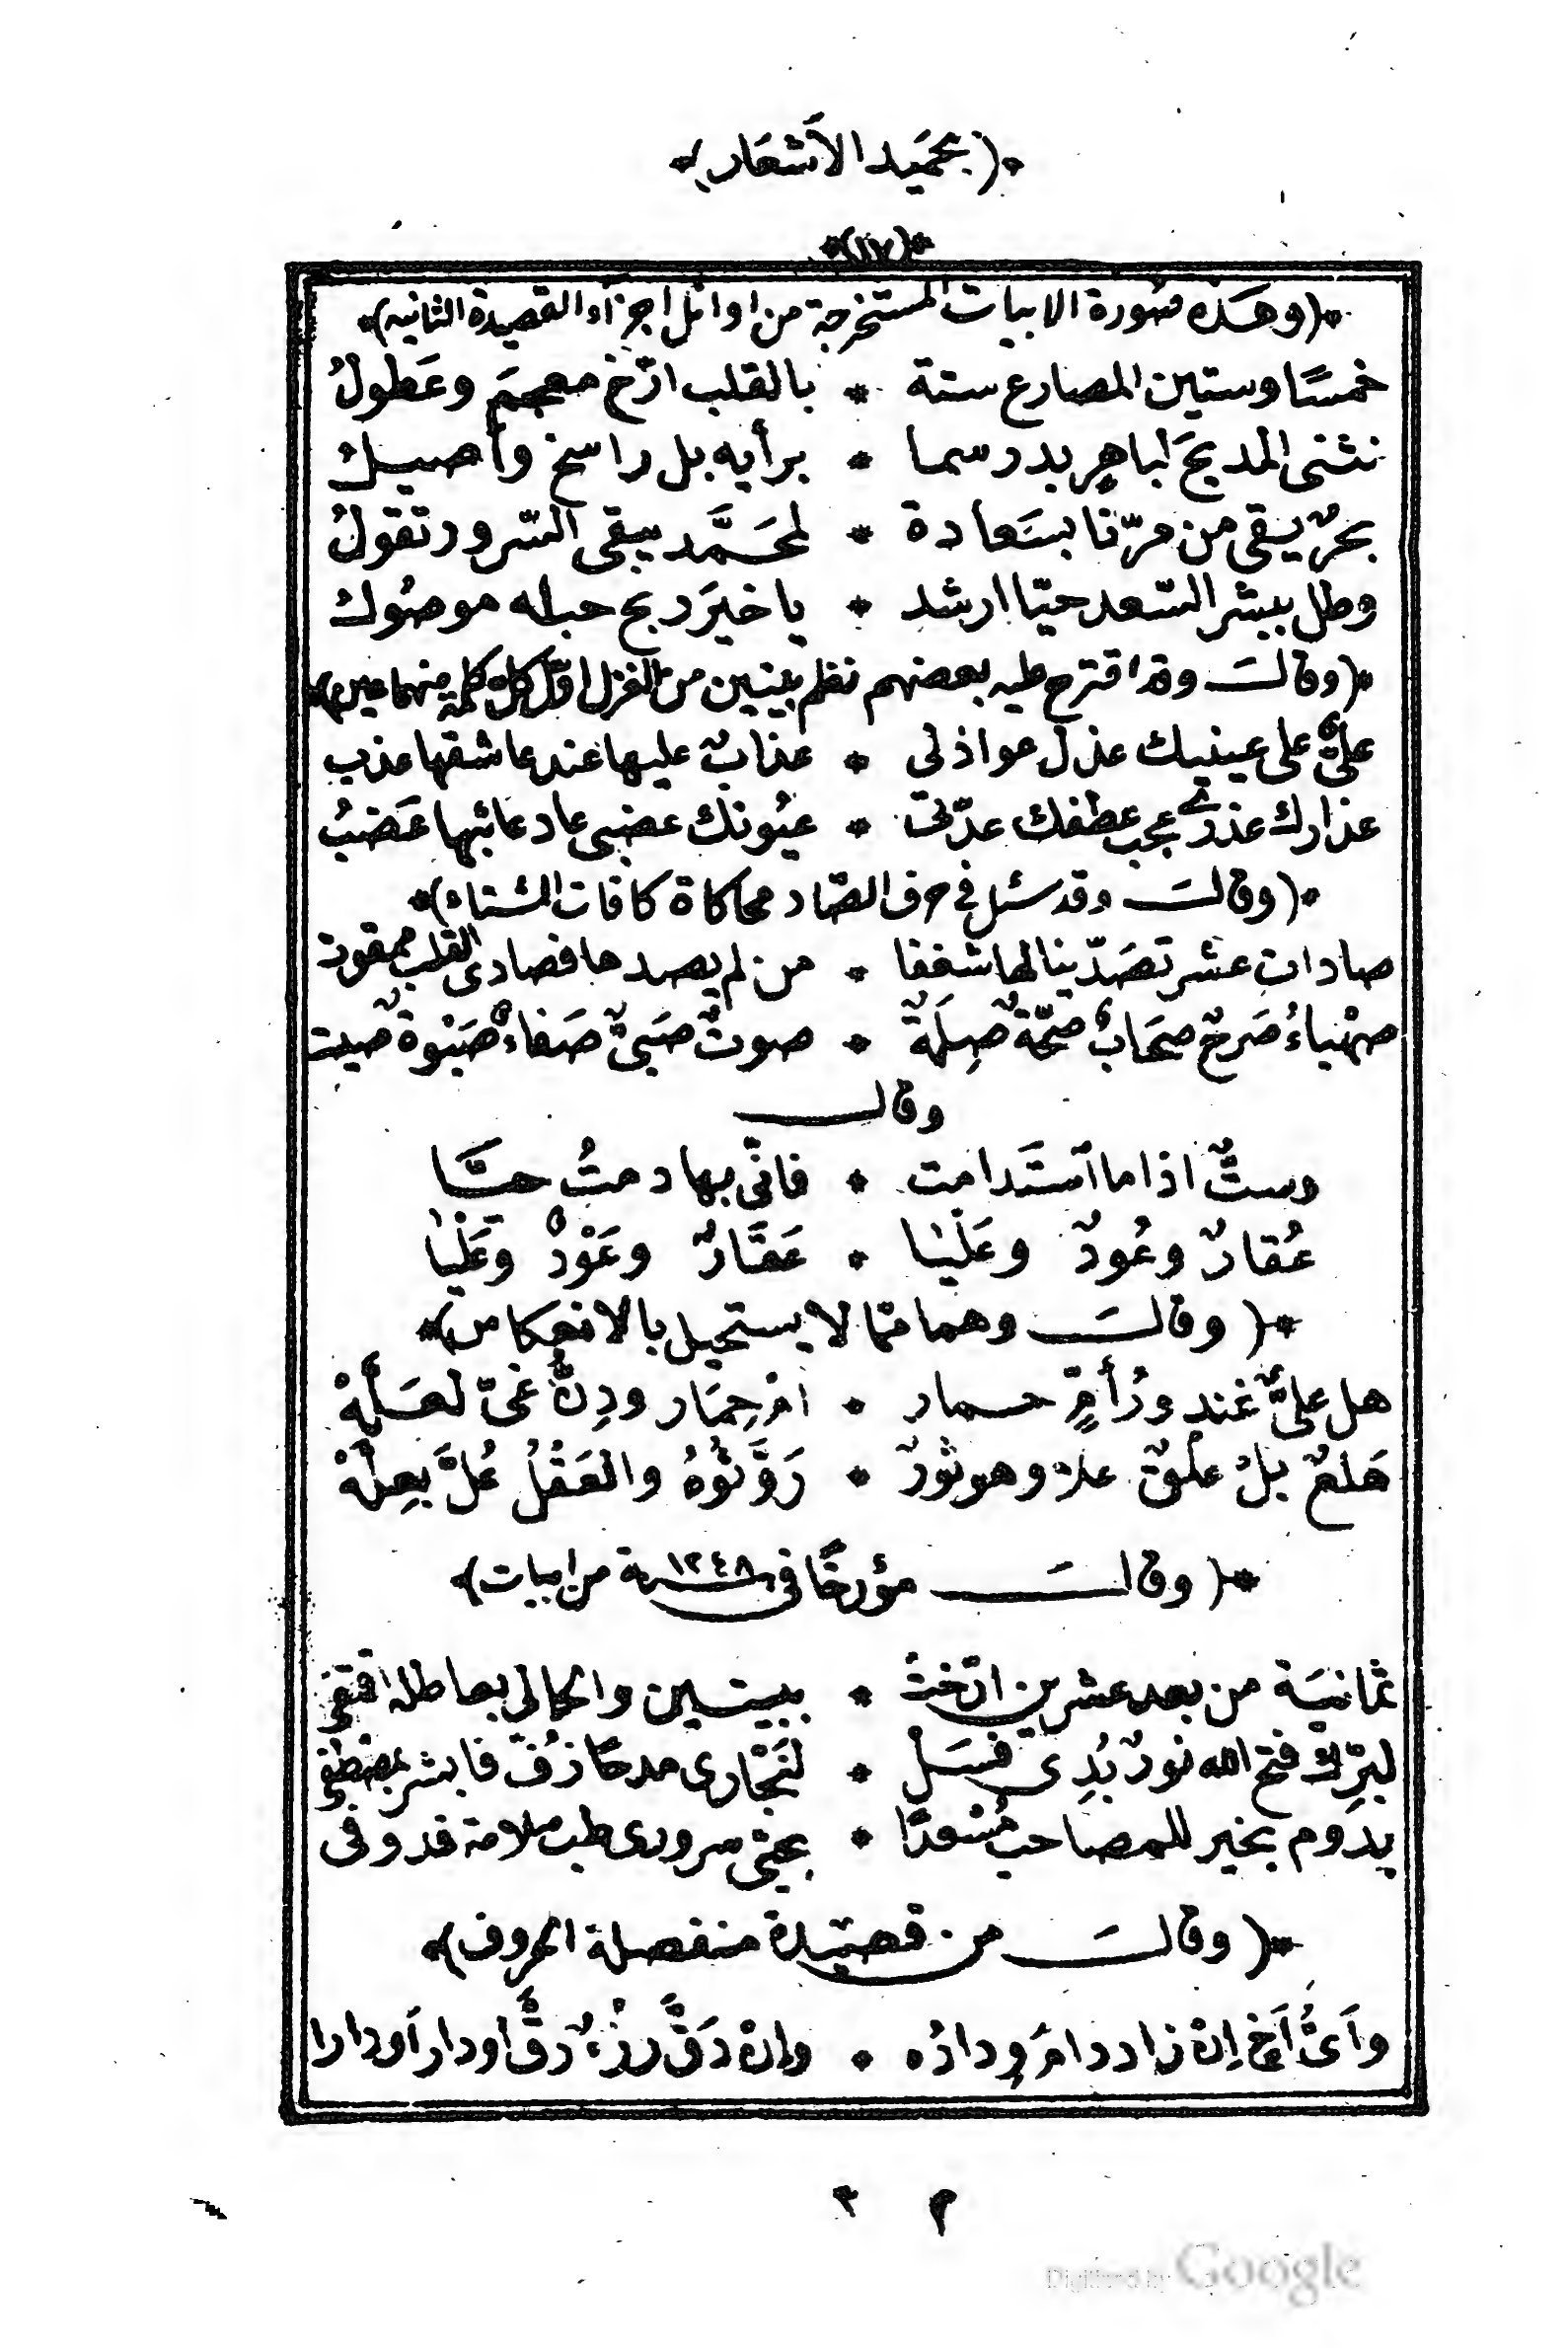 *(بحَميَد الأَشعَار)*
*(١٧)*
*(وهَذه صُورة الابيات المستخرجة من اوائل اجزآء القصيدة الثانيه)*
خمسًا وستين المصارع ستة * بالقلب ارّخ معجمَ وعَطولُ
نثنى المديحَ لباهِرٍ بدر سما * برأيه بل راسخ وأصيلُ
بحرٌ يقى من مرّنا بسَعادة * لمحَمَّد يبقى السّرور تقولُ
وطل ببشر السّعد حيّا ارشد * يا خيَر ربح حبله موصُولُ
*(وقالَ وقد اقترح عليه بعضهم نظم بيتين من الغزل اوّل كل كلمة منهما عين)*
علىٌّ على عينيك عذل عواذلي * عذابٌ عليها عند عاشقها عذب
عذارك عذرى عجب عطفك عدّتى * عيُونك عضبى عاد عائبها عَضبُ
*(وقالَ وقد سئل في حرف الصّاد محاكاة كافات الشتاء)*
صادات عشر تصَدّينا لها شغفا * من لم يصدها فصادى القلب ممقوت
صهْباءُ صَرحٌ صحَابٌ صحّةٌ صِلَةٌ * صوتٌ صَبىٌّ صَفاءٌ صَبْوةٌ صيت
وقال
وستٌّ اذا ما اَستَدامت * فانّى بها دمتُ حيَّا
عُقارٌ وعُودٌ وعَلْيا * عَقَارٌ وعَوْدٌ وعَلْيَا
*(وقالَ وهما ممّا لا يستحيل بالانعكاس)*
هل علىٌّ غند ورُأمٍّ حمار * امرحِمَار ودِنٌّ غىّ لعَلّهْ
هَلعٌ بلْ علقٌ علا وهو ثورٌ * رَوَّثوُهُ والعَقْلُ عُلَّ بعِلّهْ
*(وقالَ مؤرخًا في سنة ١٢٤٨ من ابيات)*
ثمانيَة من بعد عشرين ارّخت * ببيتين والحالى بعاطله اقتفى
لبِرّك فتح الله نورٌ بُدِى فسَلْ * لنَجْارى مدحًا زفّ فابشر بمصطفى
يدوم بخير للمصاحب مُسْعدًا * بحتى سرورى طب ملامة قد وفى
*(وقالَ من قصيدة منفصلة الحروف)*
وأَىُّ أَخ اِنْ زاد دامَ ودادُه * وإنْ دَقَّ رزْءٌ دقَّ اودار أَودارا
م ٣
Digitized by Google